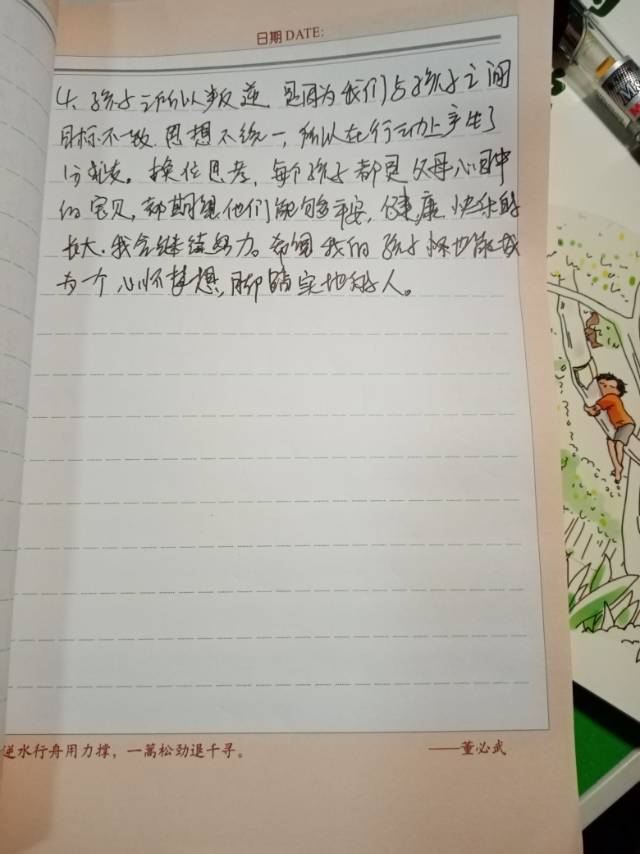 日期 DATE:
4、孩子之所以叛逆 是因为我们与孩子之间
目标不一致 思想不统一，所以在行动上产生了
分歧。换位思考，每个孩子都是父母心目中
的宝贝，都期望他们能够平安，健康 快乐的
长大。我会继续努力。希望我的孩子 也能成
为一个心怀梦想，脚踏实地的人。
逆水行舟用力撑，一篙松劲退千寻。
——董必武